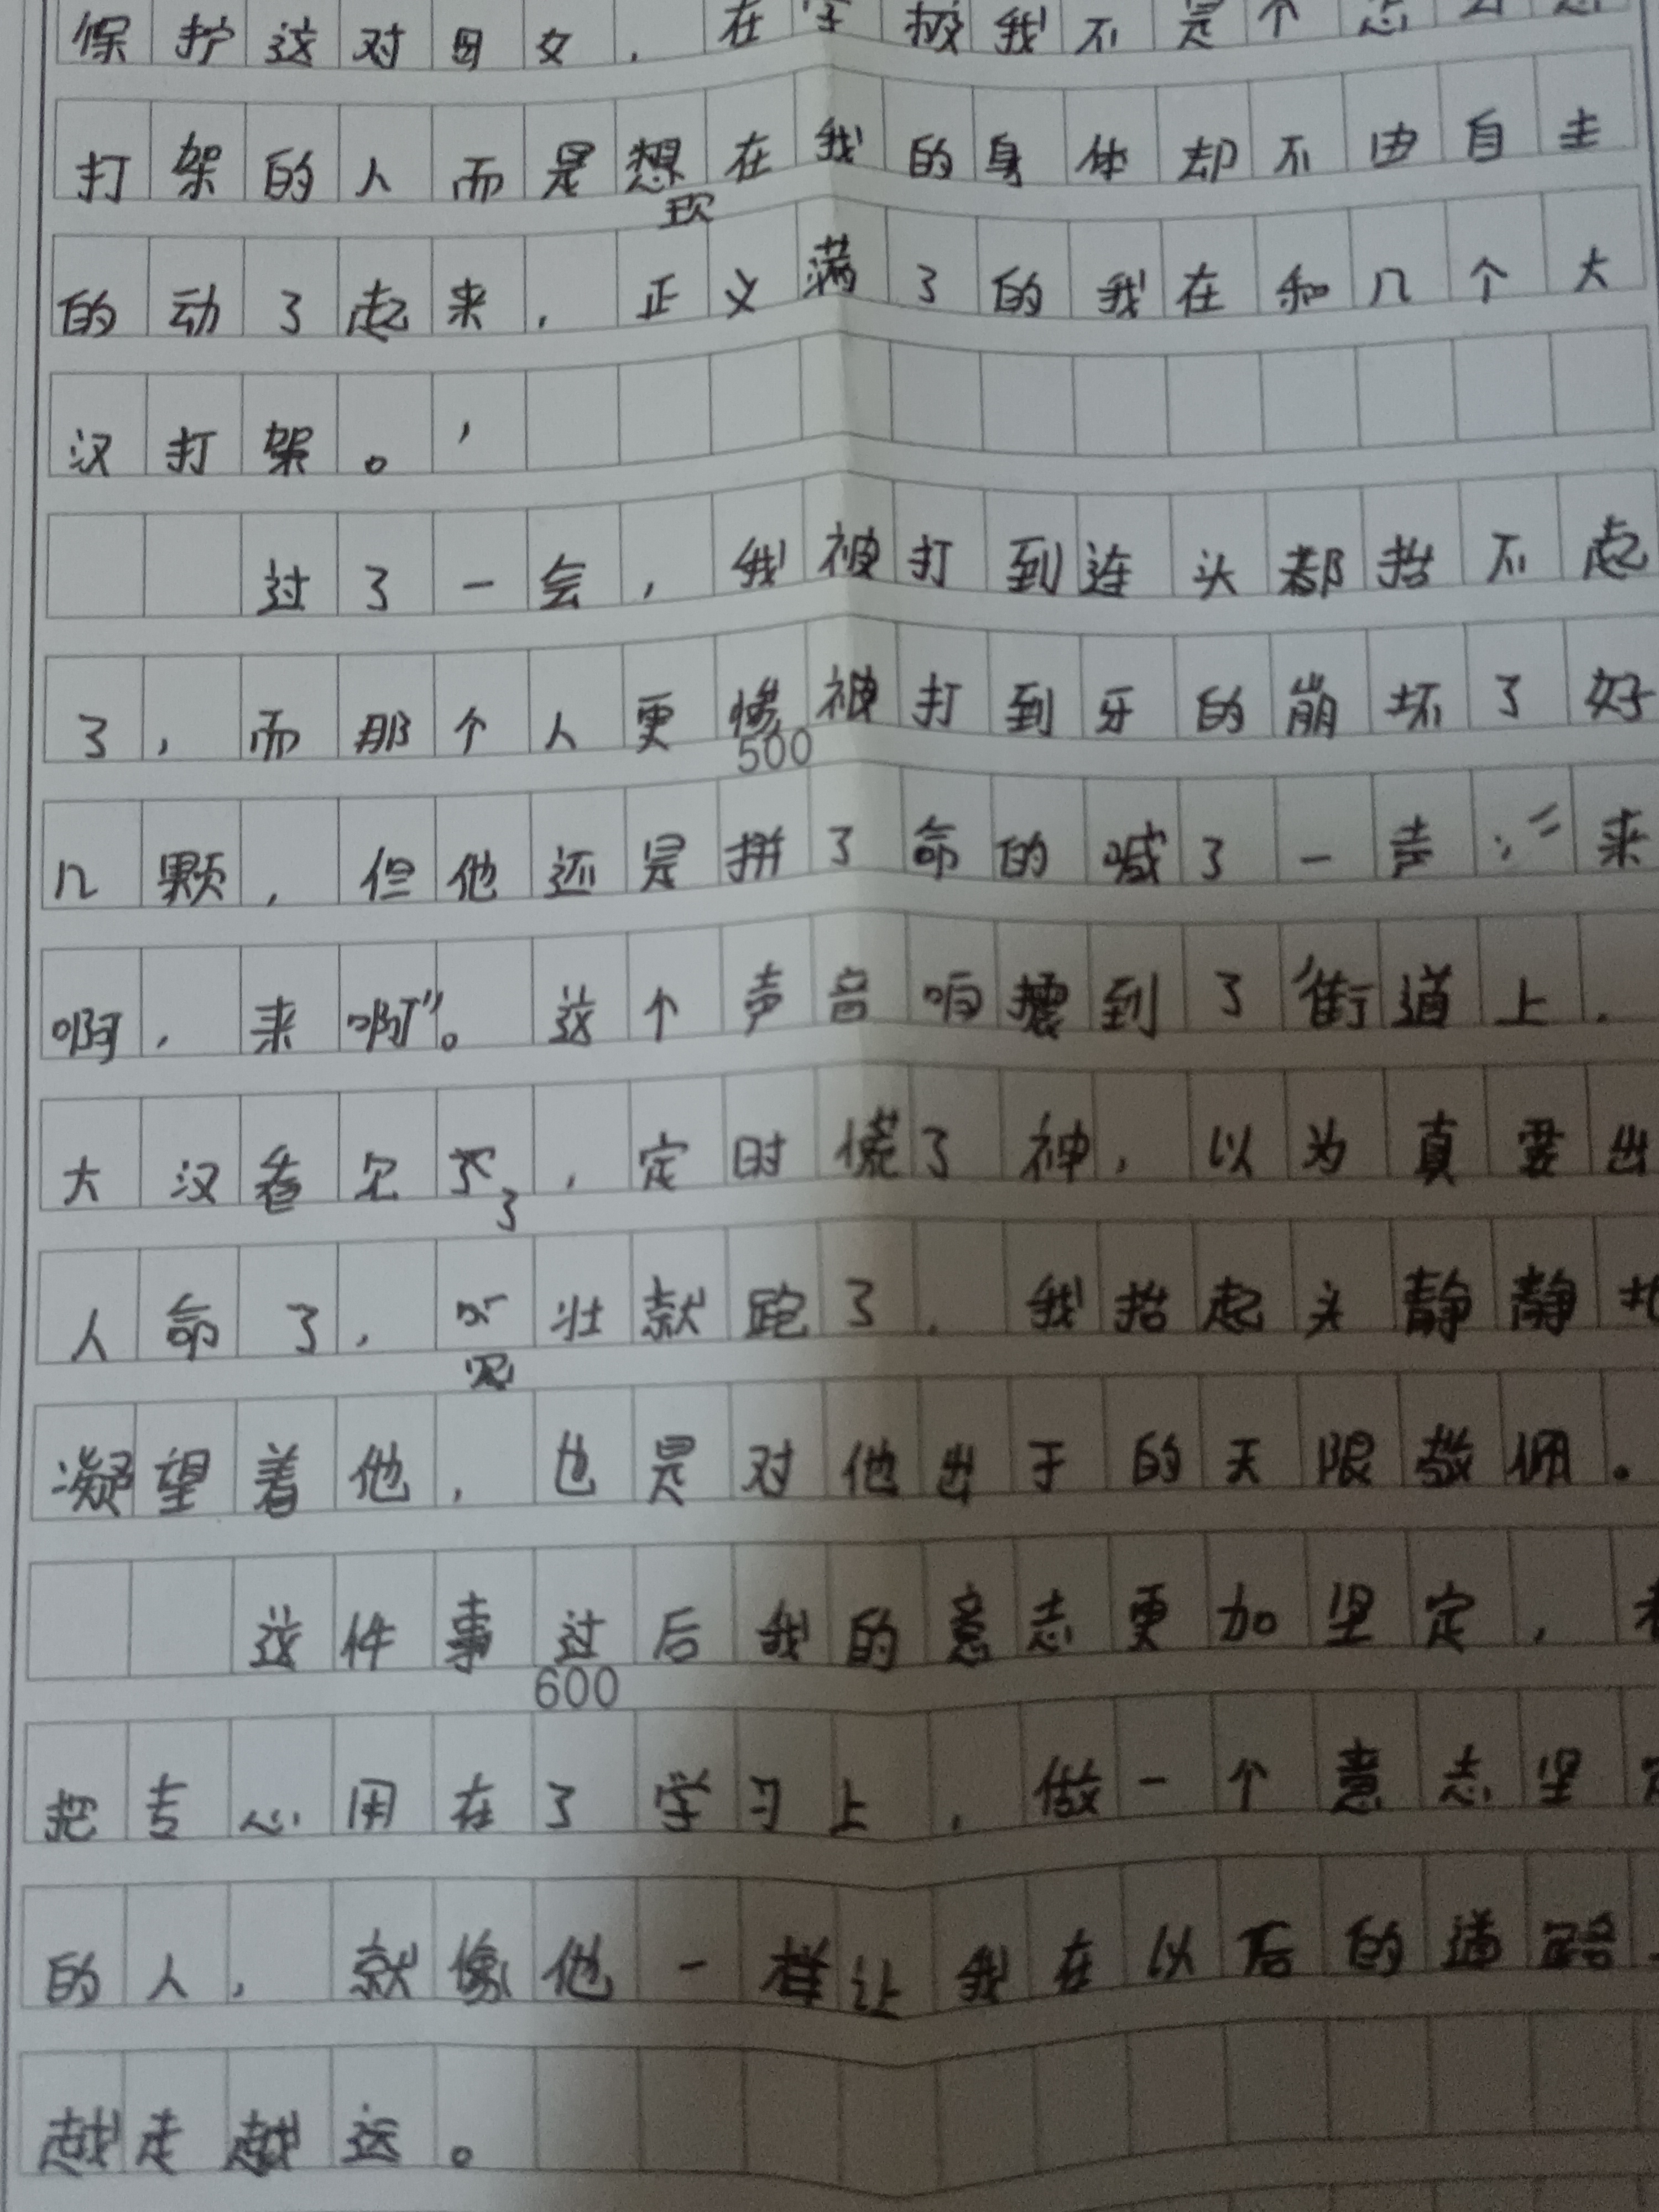 保护这对母女，在学校我不是个
打架的人而是想现在我的身体却不由自主
的动了起来，正义满了的我在和几个大
汉打架。，
过了一会，我被打到连头都抬不起
了，而那个人更惨被打到牙的崩坏了好
500
几颗，但他还是拼了命的喊了一声：“来
啊，来啊”。这个声音响摄到了街道上，
大汉看见了，定时慌了神，以为真要出
人命了，见壮就跑了，我抬起头静静地
凝望着他，也是对他出于的天限敬佩。
这件事过后我的意志更加坚定，
600
把专心用在了学习上，做一个意志坚定
的人，就像他一样让我在以后的道路
越走越远。